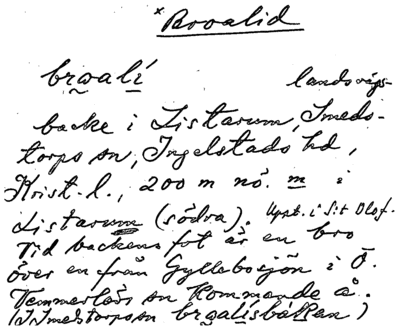 × Broalid
brωalí landsvägs-
backe i Listarum, Smeds-
torps sn, Ingelstads hd,
Krist. l., 200 m nö. m i
Listarum (södra). Uppt. i S:t Olof.
Vid backens fot är en bro
över en från Gyllebosjön i Ö.
Vemmerlövs sn kommande å.
(I Smedstorps sn brωalísbáƙƙan)